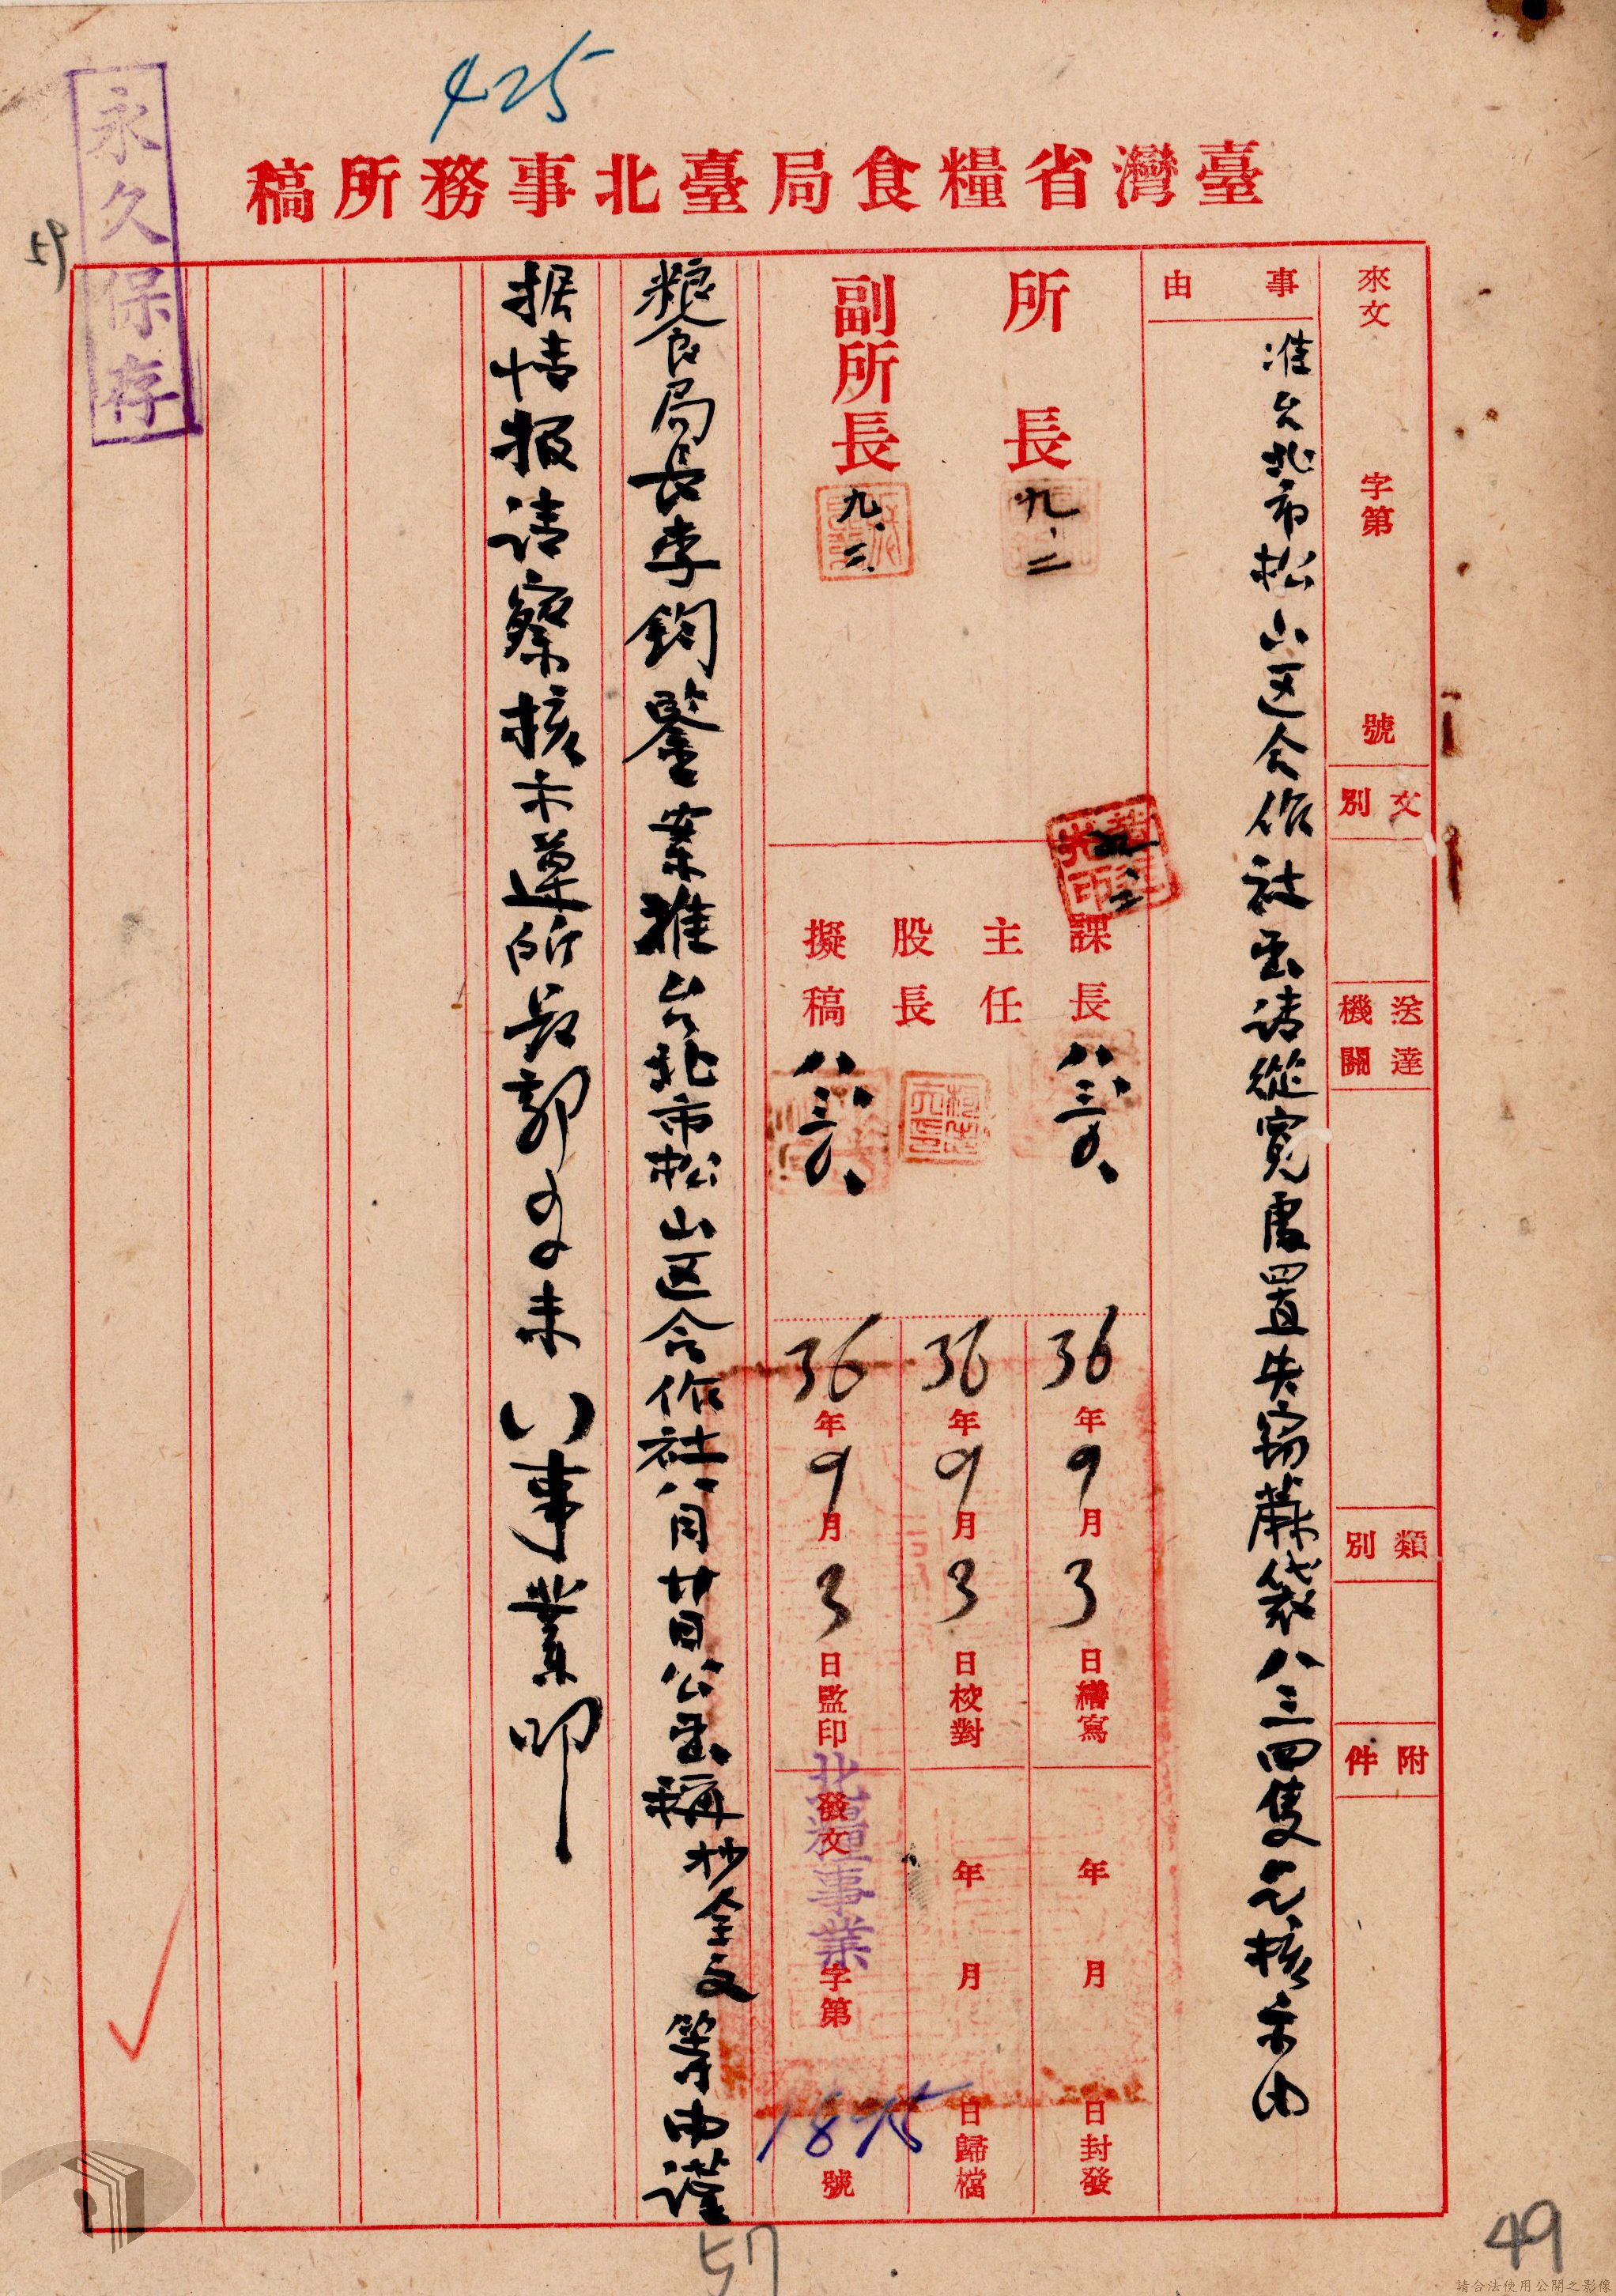 425
永久保存
59
臺灣省糧食局臺北事務所稿
來文 字第 號
文別
送達機關
類別
附件
事由
准台北市松山区合作社函請從寬處置失窃蔴袋八三四隻乞核示由
所長
九、二
副所長
九、二
課長
八三〇、
主任
股長
擬稿
八三〇、
36年9月3日繕寫
年月日封發
36年9月3日校對
年月日歸檔
36年9月3日監印
發文北糧事業字第1875號
粮食局長李鈞鑒案准台北市松山区合作社八月廿日公函稱抄全文等由謹
据情报请察核示遵所長郭叩未(  )事業印
57
49
請合法使用公開之影像